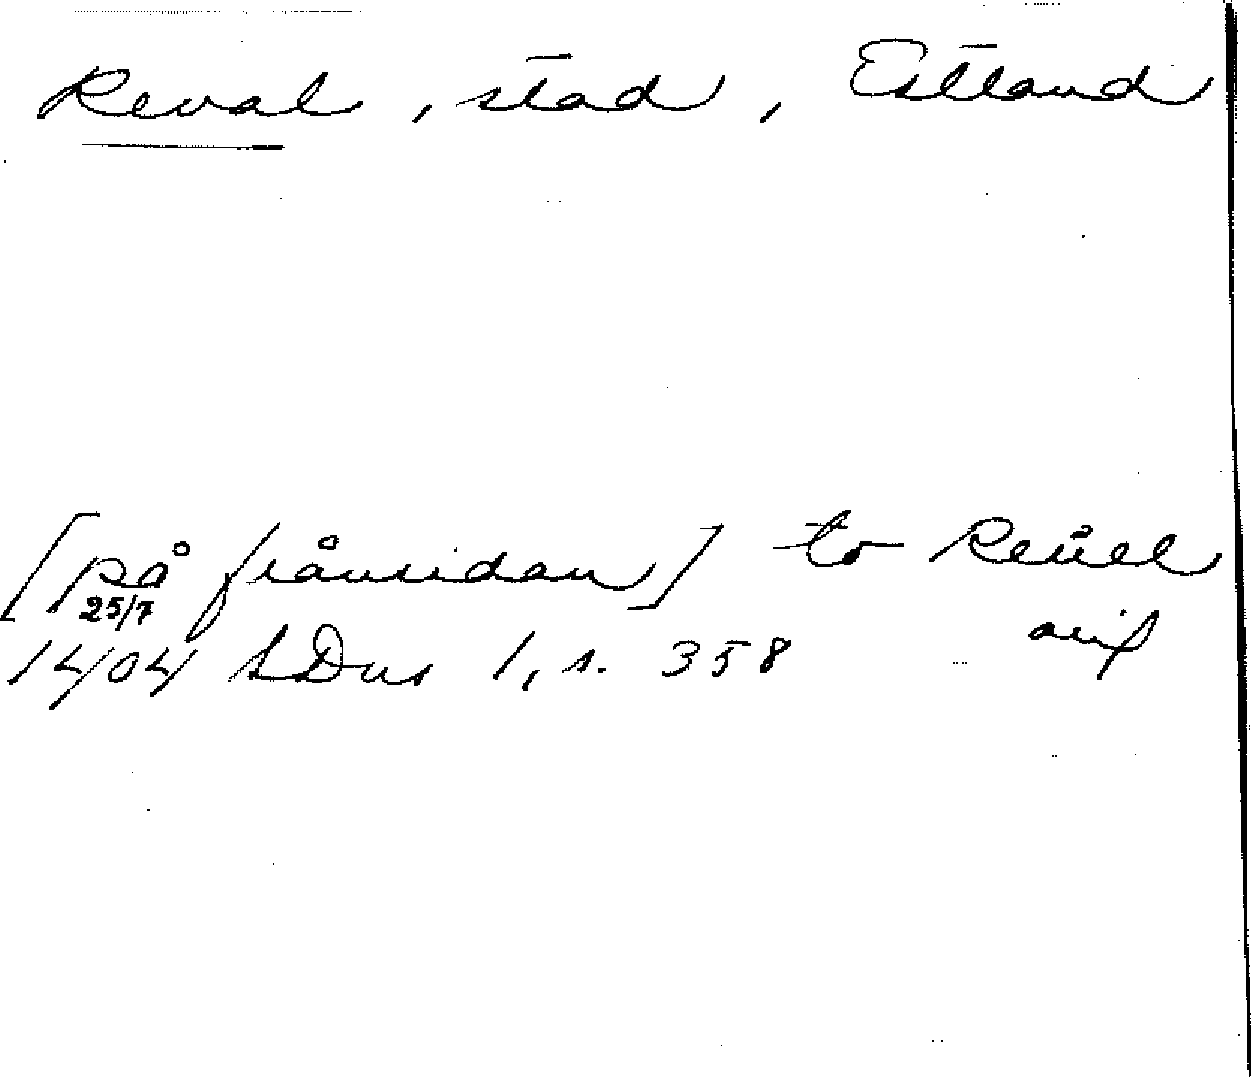 Reval, stad, Estland
[på frånsidan] to Reuel
25/7
1404 SDns 1, s. 358 avs